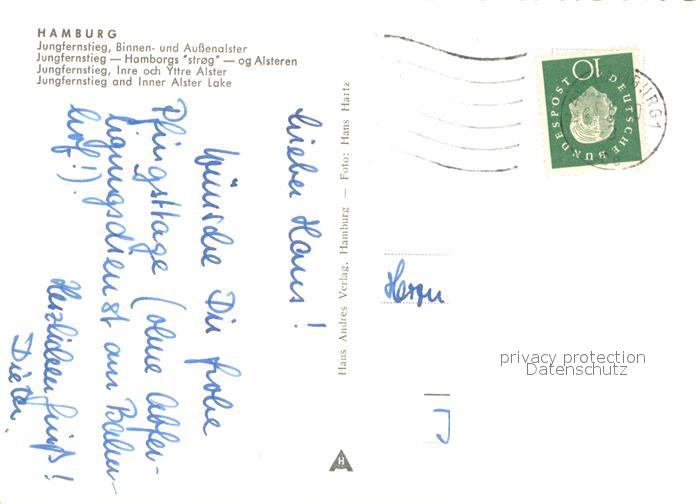 HAMBURG
Jungfernstieg, Binnen- und Außenalster
Jungfernstieg — Hamborgs "strøg" — og Alsteren
Jungfernstieg, Inre och Yttre Alster
Jungfernstieg and Inner Alster Lake
Lieber Hans!
Wünsche Dir frohe
Pfingsttage (ohne Abfer-
tigungsdienst am Bahn-
hof!).
Herzlichen Gruß!
Dieter.
Hans Andres Verlag, Hamburg — Foto: Hans Hartz
H
10
DEUTSCHE BUNDESPOST
BURG 1
Herrn
privacy protection
Datenschutz